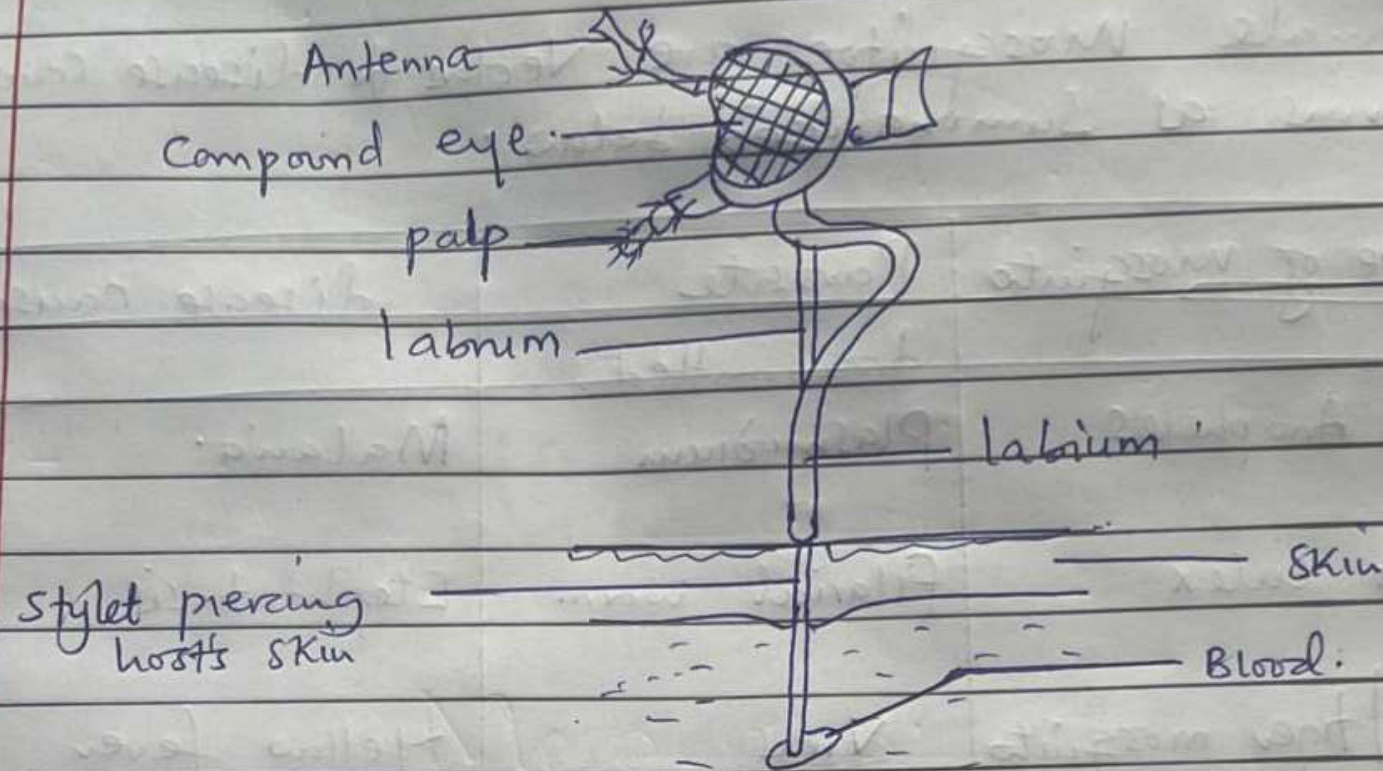 Antenna
Compound eye.
palp
labrum
labium
Skin
stylet piercing
host's skin
Blood.